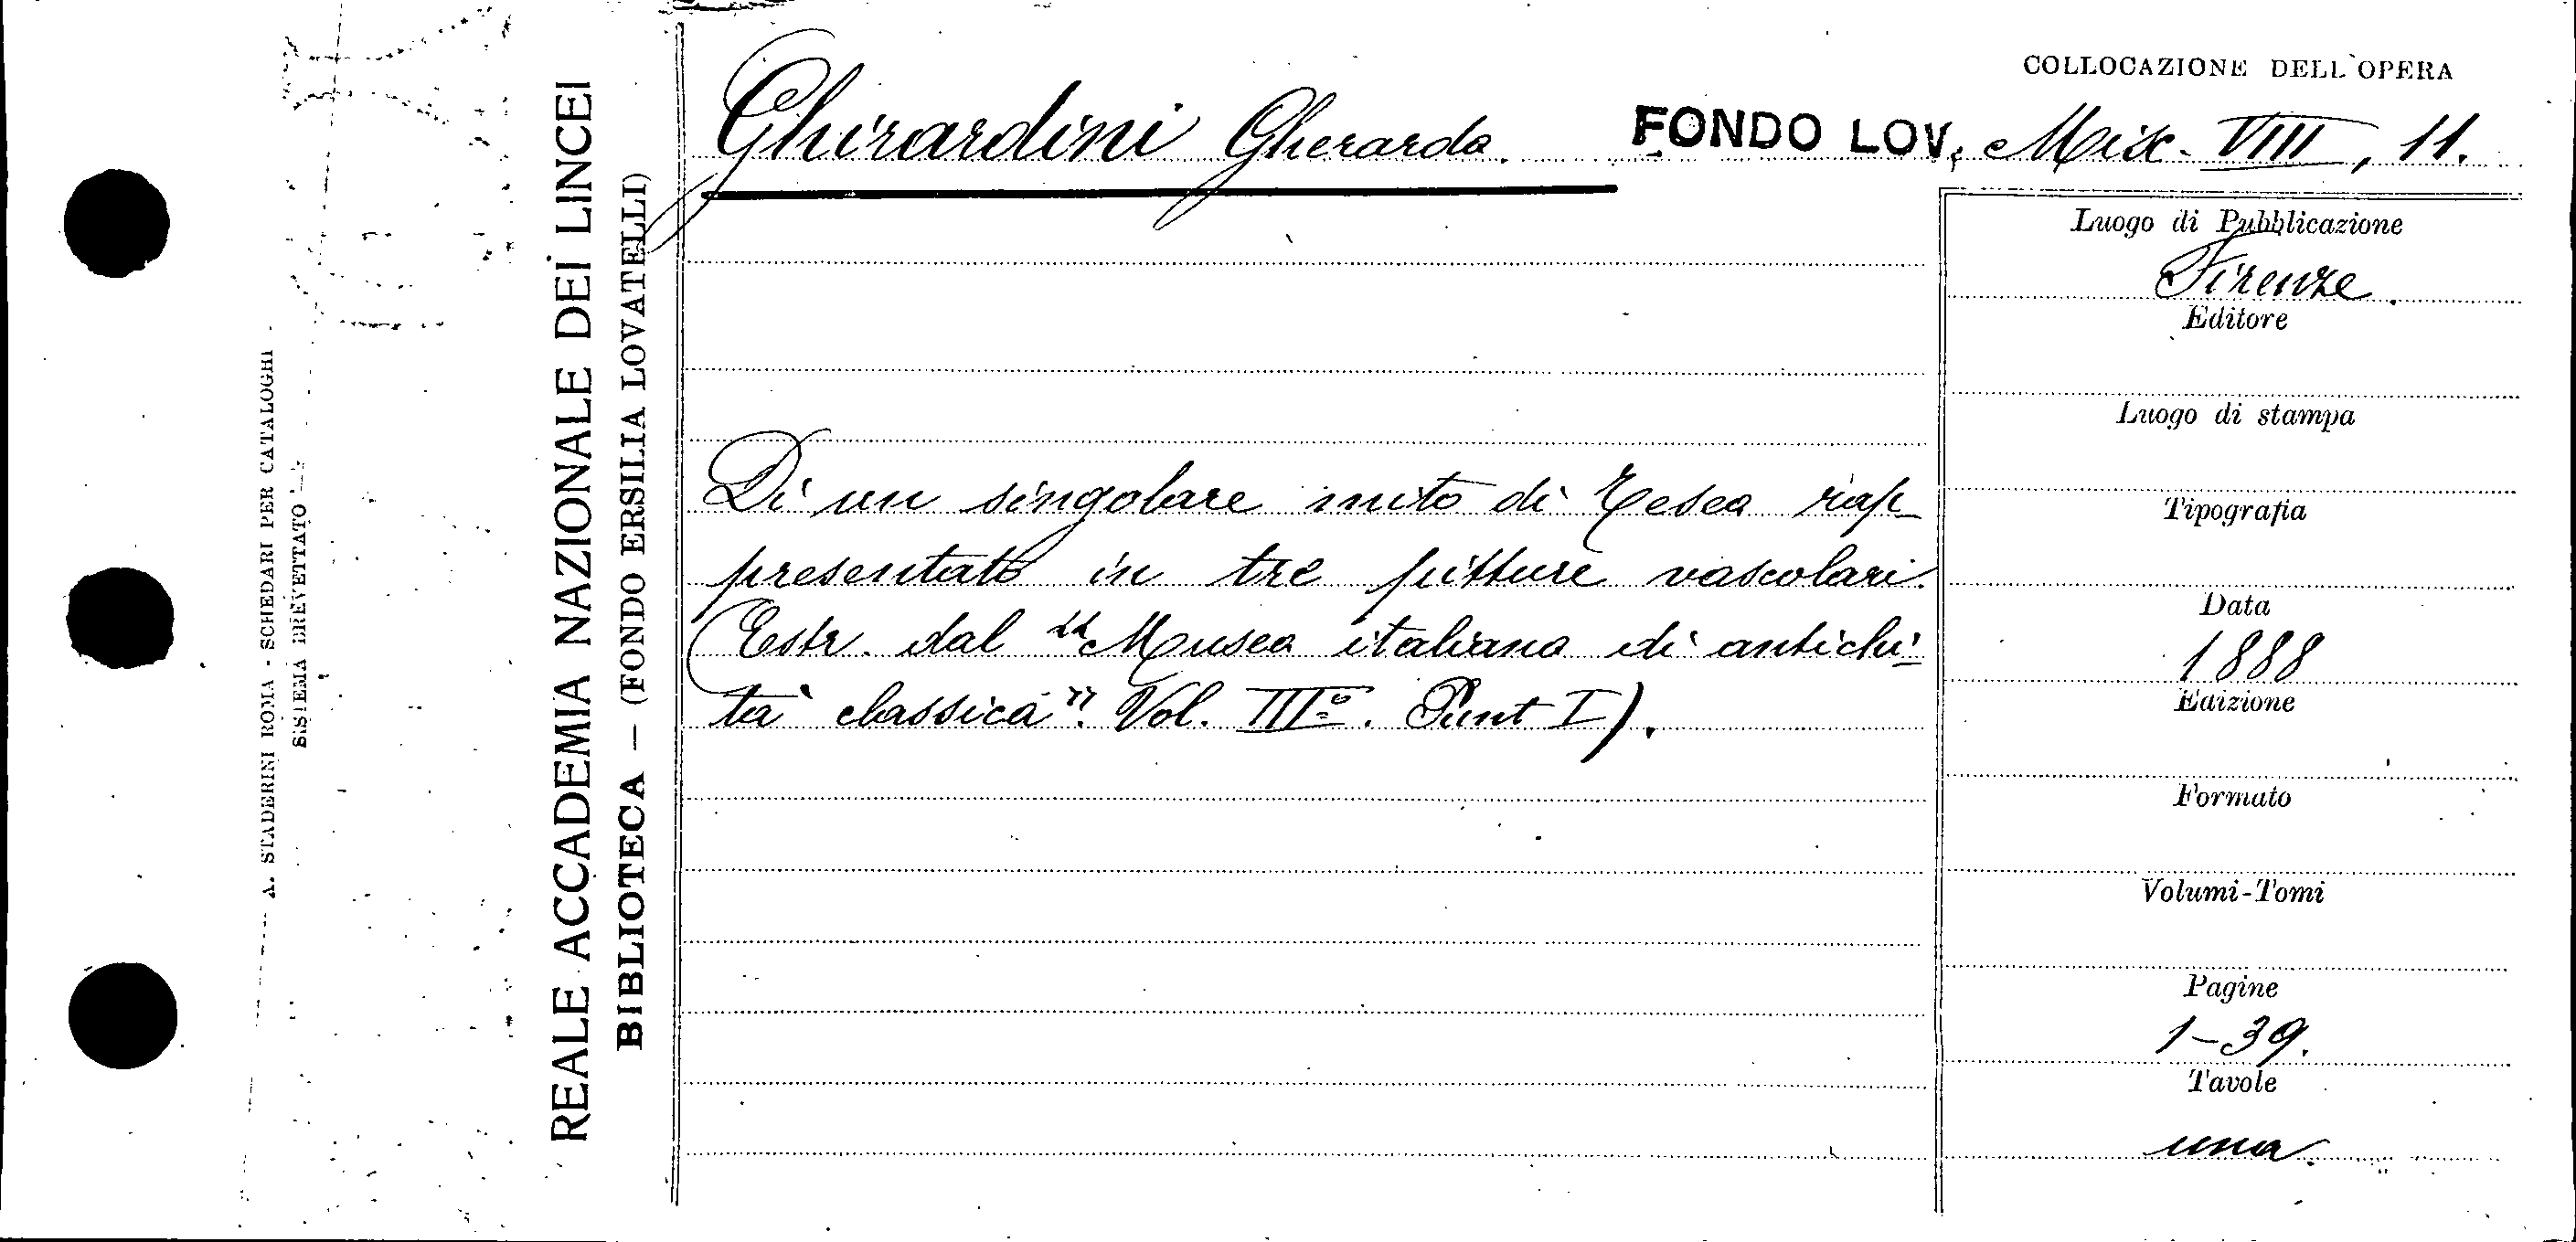 COLLOCAZIONE DELL'OPERA
Ghirardini Gherardo.
FONDO LOV. Misc. VIII, 11.
Di un singolare mito di Teseo rap-
presentato in tre pitture vascolari.
(Estr. dal "Museo italiano di antichi-
tà classica". Vol. IIIº. Punt I).
Luogo di Pubblicazione
Firenze.
Editore
Luogo di stampa
Tipografia
Data
1888
Edizione
Formato
Volumi-Tomi
Pagine
1-39.
Tavole
una.
REALE ACCADEMIA NAZIONALE DEI LINCEI
BIBLIOTECA — (FONDO ERSILIA LOVATELLI)
A. STADERINI ROMA - SCHEDARI PER CATALOGHI
SISTEMA BREVETTATO